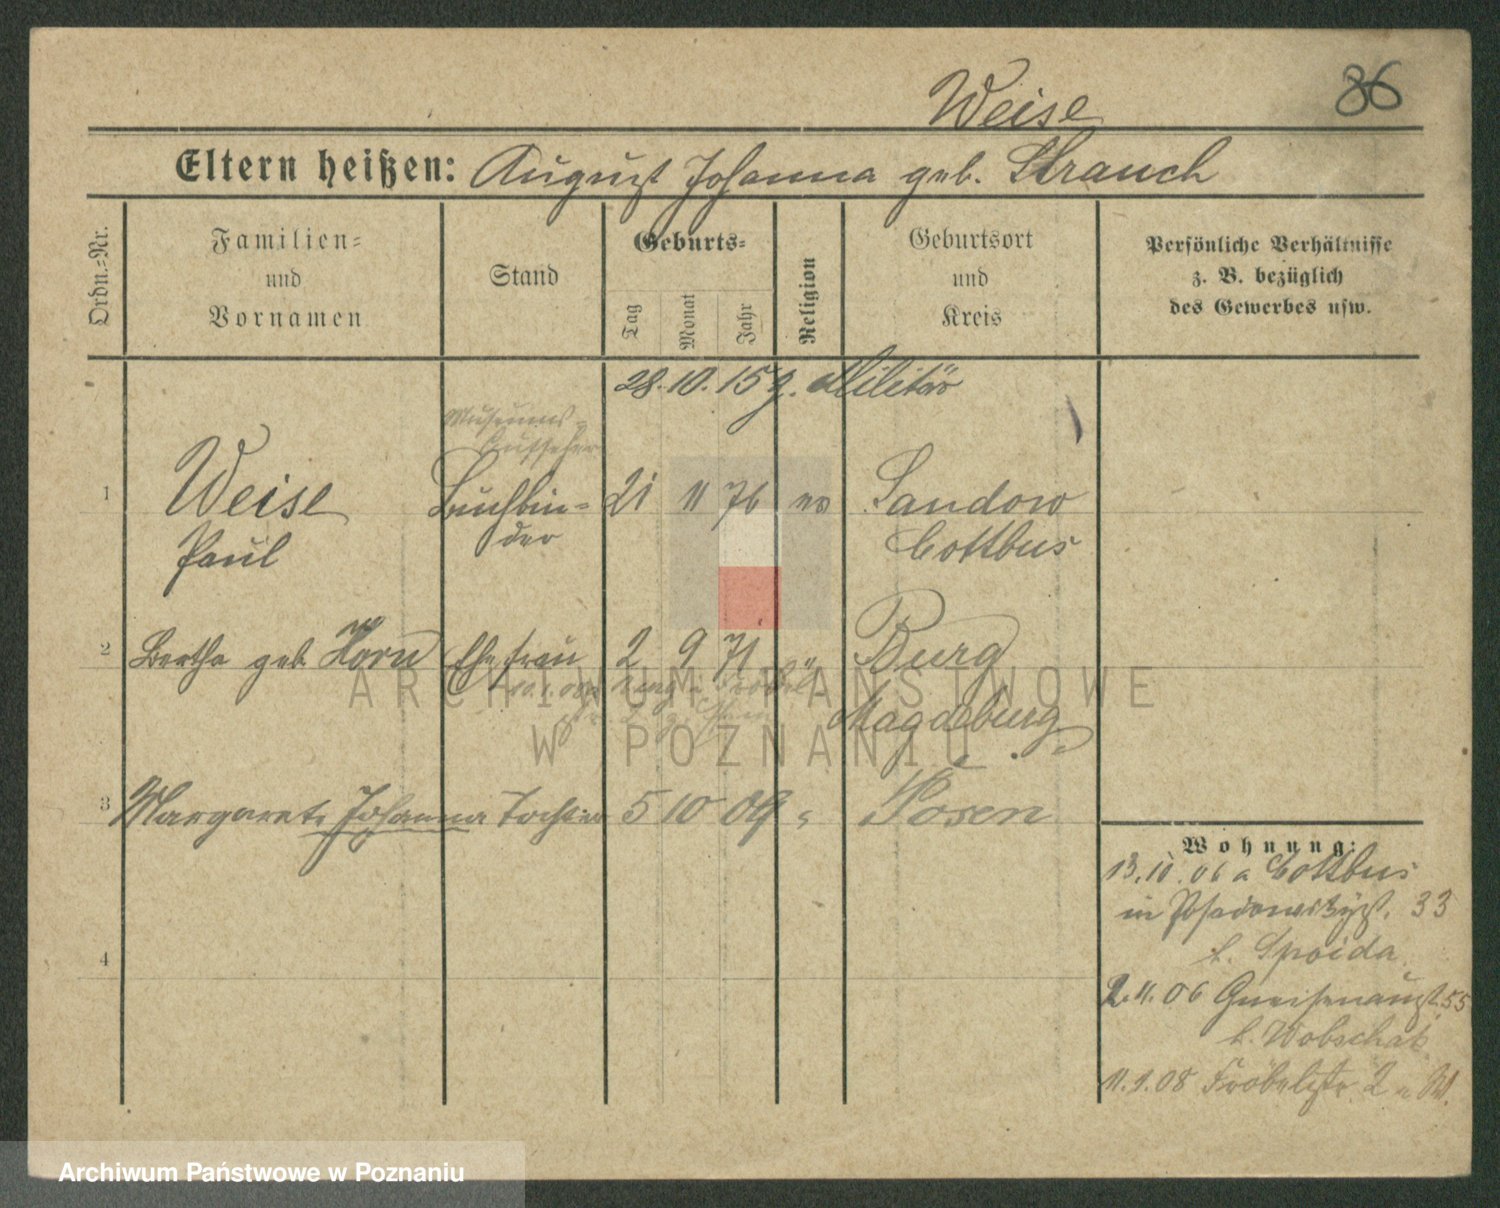 Weise
86
Eltern heißen: August Johanna geb. Strauch
Ordn.-Nr.
Familien-
und
Vornamen
Stand
Geburts-
Tag
Monat
Jahr
Religion
Geburtsort
und
Kreis
Persönliche Verhältnisse
z. B. bezüglich
des Gewerbes usw.
28.10.15 z. Militär
Museums-
Aufseher
1 Weise Buchbin- 21 11 76 ev Sandow
Paul der Cottbus
2 Bertha geb. Horn Ehefrau 2 9 71 " Burg
Magdeburg
3 Margarete Johanna Tochter 5 10 09 " Posen
4
Wohnung:
13.10.06 a Cottbus
in Posadowskyst. 33
b. Spoida
2.11.06 Gneisenaust. 55
b. Wobschal
11.1.08 Fröbelstr. 2
ARCHIWUM PAŃSTWOWE
W POZNANIU
Archiwum Państwowe w Poznaniu